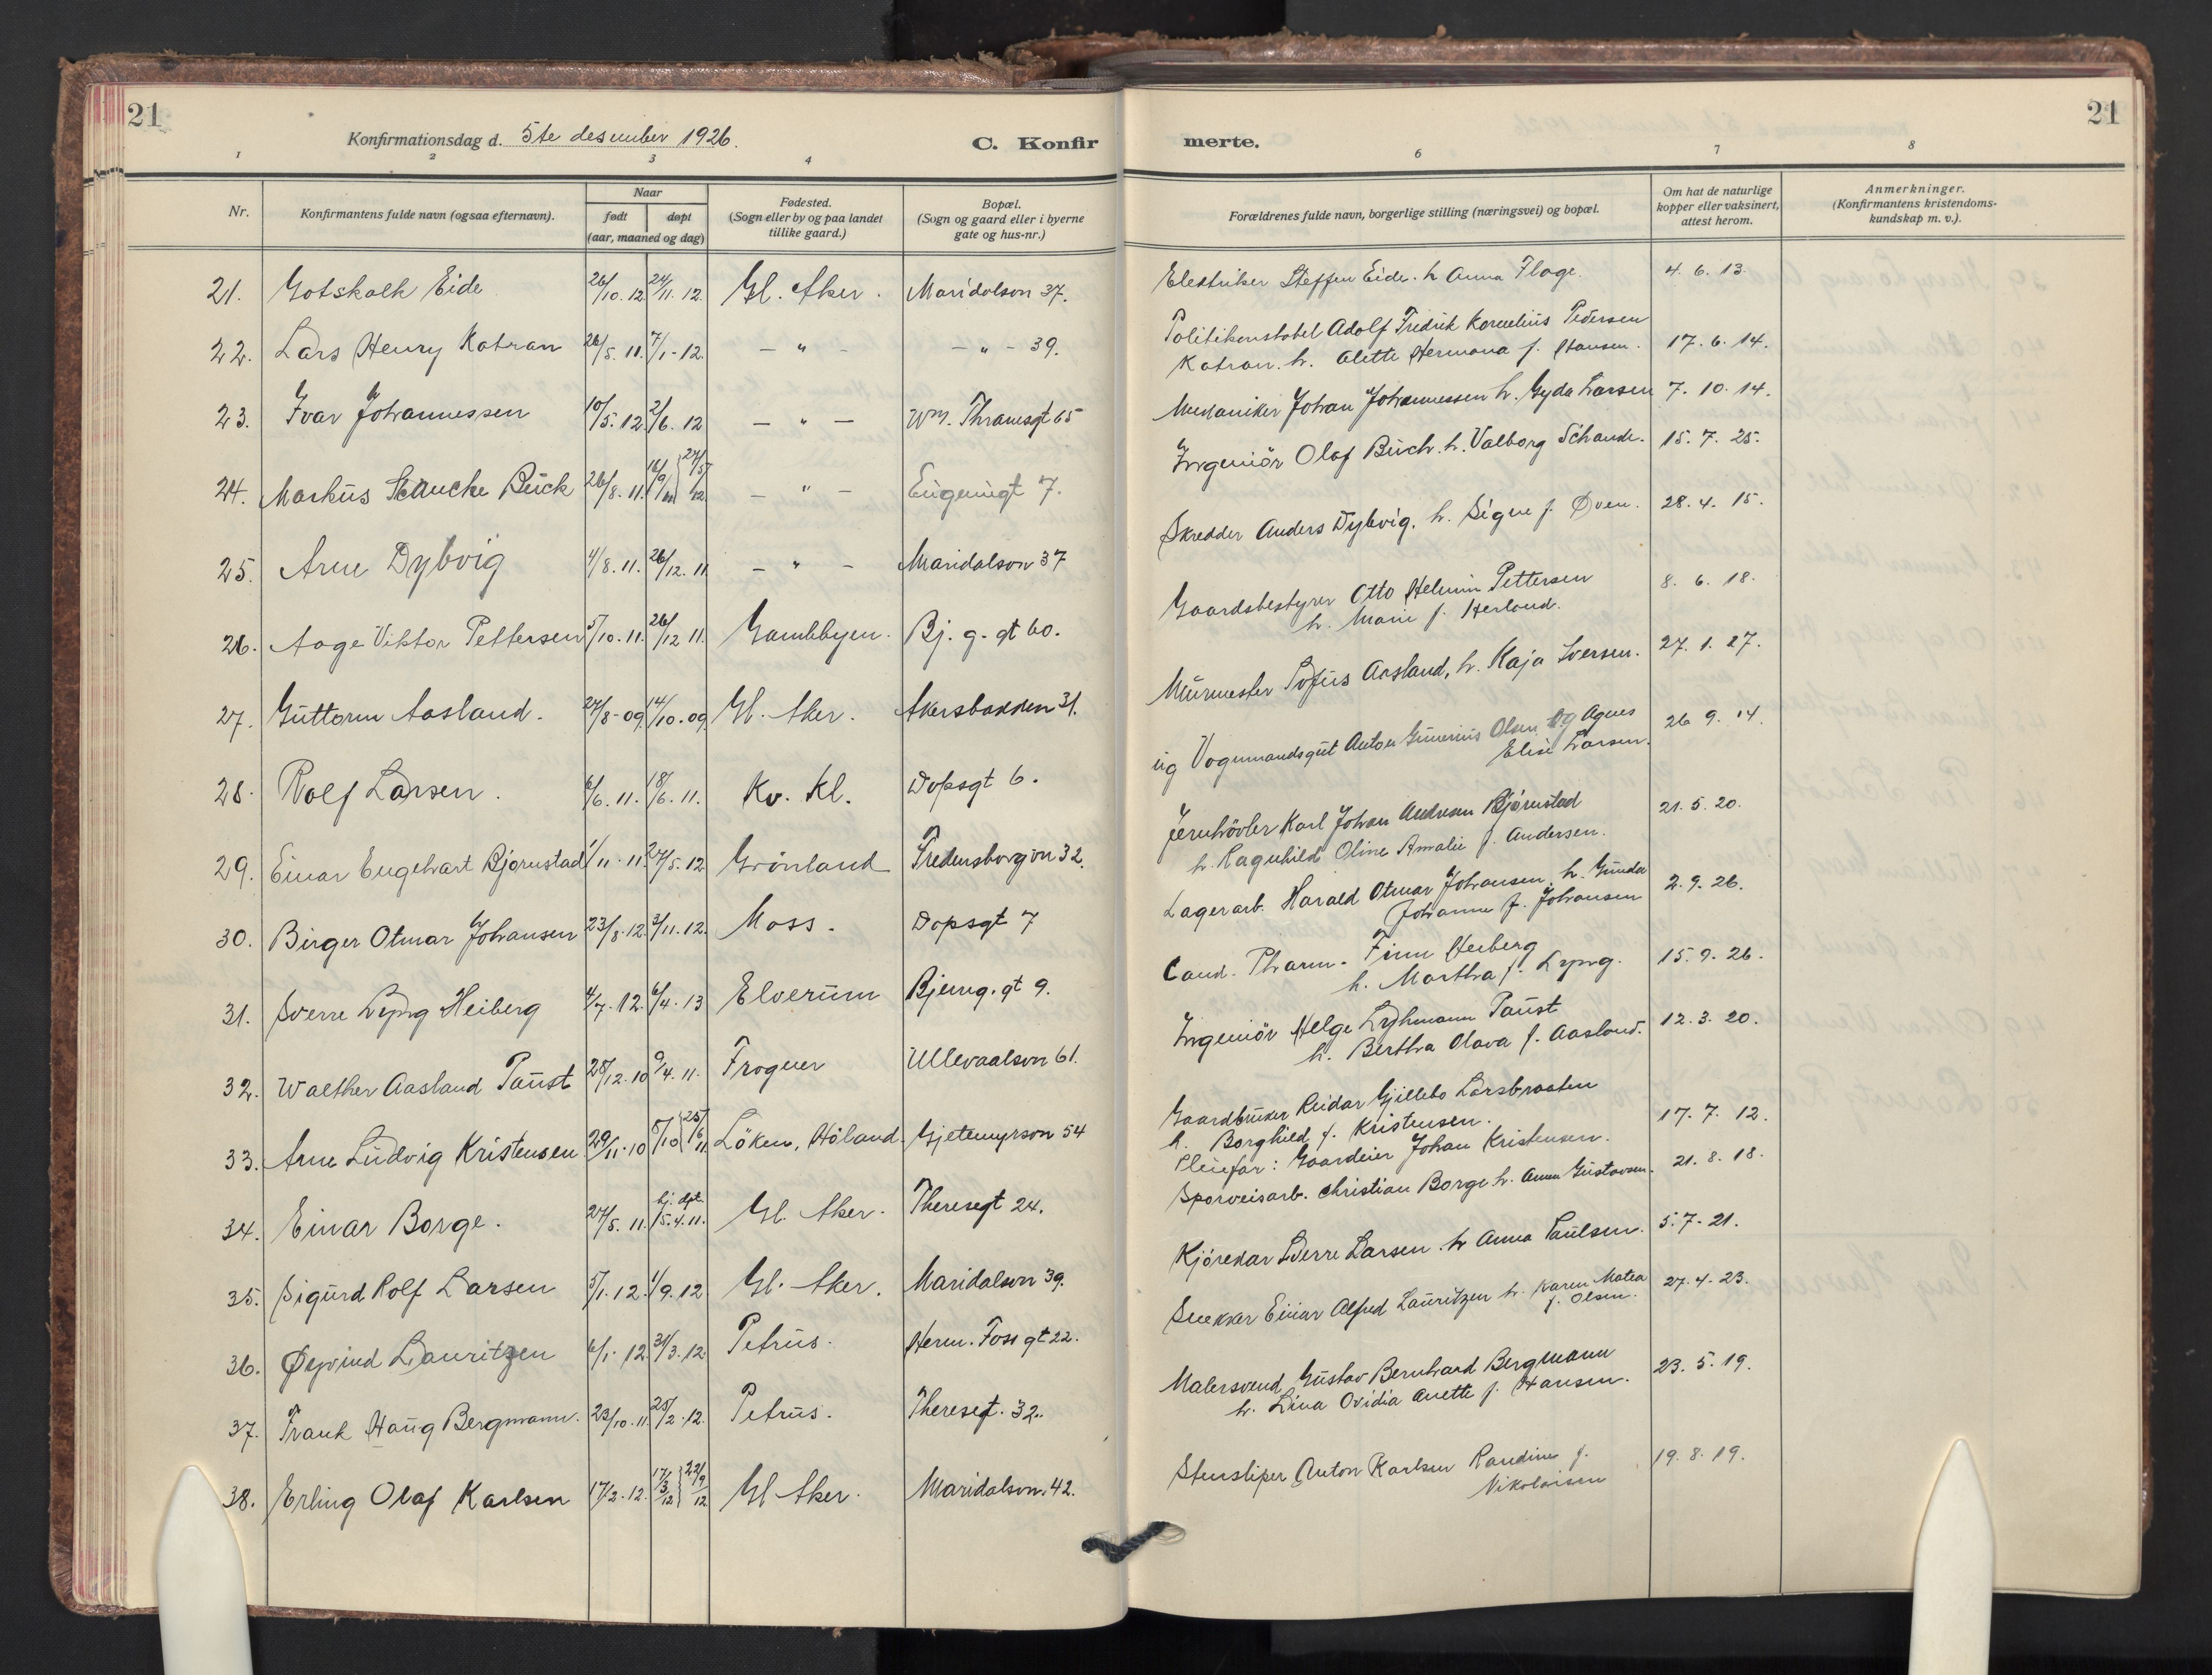 21
Konfirmationsdag d. 5te desember 1926.
C. Konfir
1 2 3 4
Nr.
Konfirmantens fulde navn (ogsaa efternavn).
Naar
født døpt
(aar, maaned og dag)
Fødested.
(Sogn eller by og paa landet
tillike gaard.)
Bopæl.
(Sogn og gaard eller i byerne
gate og hus-nr.)
21. Gotskalk Eide 26/10.12 24/11.12. Gl. Aker. Maridalsvn 37.
22. Lars Henry Katran 26/5.11. 7/1-12. — " — — " — 39.
23. Ivar Johannessen 10/5.12. 2/6.12 — " — Wm. Thranesgt 65
24. Markus Buck 26/8.11. — " — Eugenigt 7.
25. Arne Dybvig 4/8.11. 26/12.11 — " — Maridalsvn 37
26. Aage Viktor Pettersen 5/10.11. 26/12 11. Gamlebyen. Bj. g. gt 60.
27. Guttorm Aasland. 27/8-09. 14/10.09. Gl. Aker. Akersbakken 31.
28. Rolf Larsen. 6/6.11. 18/6.11. Kv. Kl. Dopsgt 6.
29. Einar Engelhart Bjørnstad 1/11.11. 27/5.12 Grönland Fredensborgvn 32.
30. Birger Otmar Johansen 23/8.12. 3/11.12. Moss. Dopsgt 7
31. Sverre Lyng Heiberg 4/7.12. 6/4.13 Elverum Bjerreg. gt 9.
32. Walther Aasland Paust 28/12.10 9/4.11. Frogner Ullevaalsvn 61.
33. Arne Ludvig Kristensen 29/11.10 Löken, Höland. Gjetemyrsvn 54
hj. dpt.
34. Einar Borge. 27/5.11. 15.4.11. Gl. Aker. Theresegt 24.
35. Sigurd Rolf Larsen 5/1.12. 1/9.12 Gl. Aker. Maridalsvn 39.
36. Øyvind Lauritzen 6/1.12. 31/3.12. Petrus. Herm. Foss gt 22.
37. Frank Haug Bergmann. 23/10.11. 25/2.12. Petrus. Theresegt. 32.
38. Erling Olaf Karlsen 17/2.12. 17/3 12 } 22/9 12 Gl Aker. Maridalsvn. 42.
21
merte.
6 7 8
Forældrenes fulde navn, borgerlige stilling (næringsvei) og bopæl.
Om hat de naturlige
kopper eller vaksinert,
attest herom.
Anmerkninger.
(Konfirmantens kristendoms-
kundskap m. v.).
Elektriker Steffen Eide. h Anna Flage. 4. 6. 13.
Politikonstabel Adolf Fredrik Kornelius Pedersen
Katran. h. Alette Hermana f. Hansen. 17. 6. 14.
Mekaniker Johan Johannessen h. Gyda Larsen 7. 10. 14.
Ingeniör Olaf Buch. h. Valborg Schaude. 15. 7. 25.
Skredder Anders Dybvig. h. Signe f. Øven. 28. 4. 15.
Gaardsbestyrer Otto Helmin Pettersen 8. 6. 18.
h. Marie f. Herland.
Murmester Sofus Aasland, h. Kaja Iversen. 27. 1. 27.
ug Vognmandsgut Anton Gunerius Olsen og Agnes 26 9. 14.
Elise Larsen.
Jernhövler Karl Johan Andreas Bjørnstad 21. 5. 20.
h. Ragnhild Oline Amalie f. Andersen.
Lagerarb. Harald Otmar Johansen, h. Gunda 2. 9. 26.
Johanne f. Johansen
Cand. Pharm. Finn Heiberg
h. Martha f. Lyng. 15. 9. 26.
Ingeniör Helge Lyhmann Paust
h. Bertha Olava f. Aasland. 12. 3. 20.
Gaardbruker Reidar Gjillebo Larsbraaten
h. Borghild f. Kristensen. 17. 7. 12.
Pleiefar: Gaardeier Johan Kristensen.
Sporveisarb. Christian Borge h. Anna Gustavsen. 21. 8. 18.
Kjörekar Sverre Larsen. h Anna Paulsen. 5. 7. 21.
Snekker Einar Alfred Lauritzen h. Karen Matea 27. 4. 23.
f. Olsen.
Malersvend Gustav Bernhard Bergmann 23. 5. 19.
h. Lina Ovidia Anette f. Hansen.
Stensliper Anton Karlsen Randine f. 19. 8. 19.
Nikolaisen